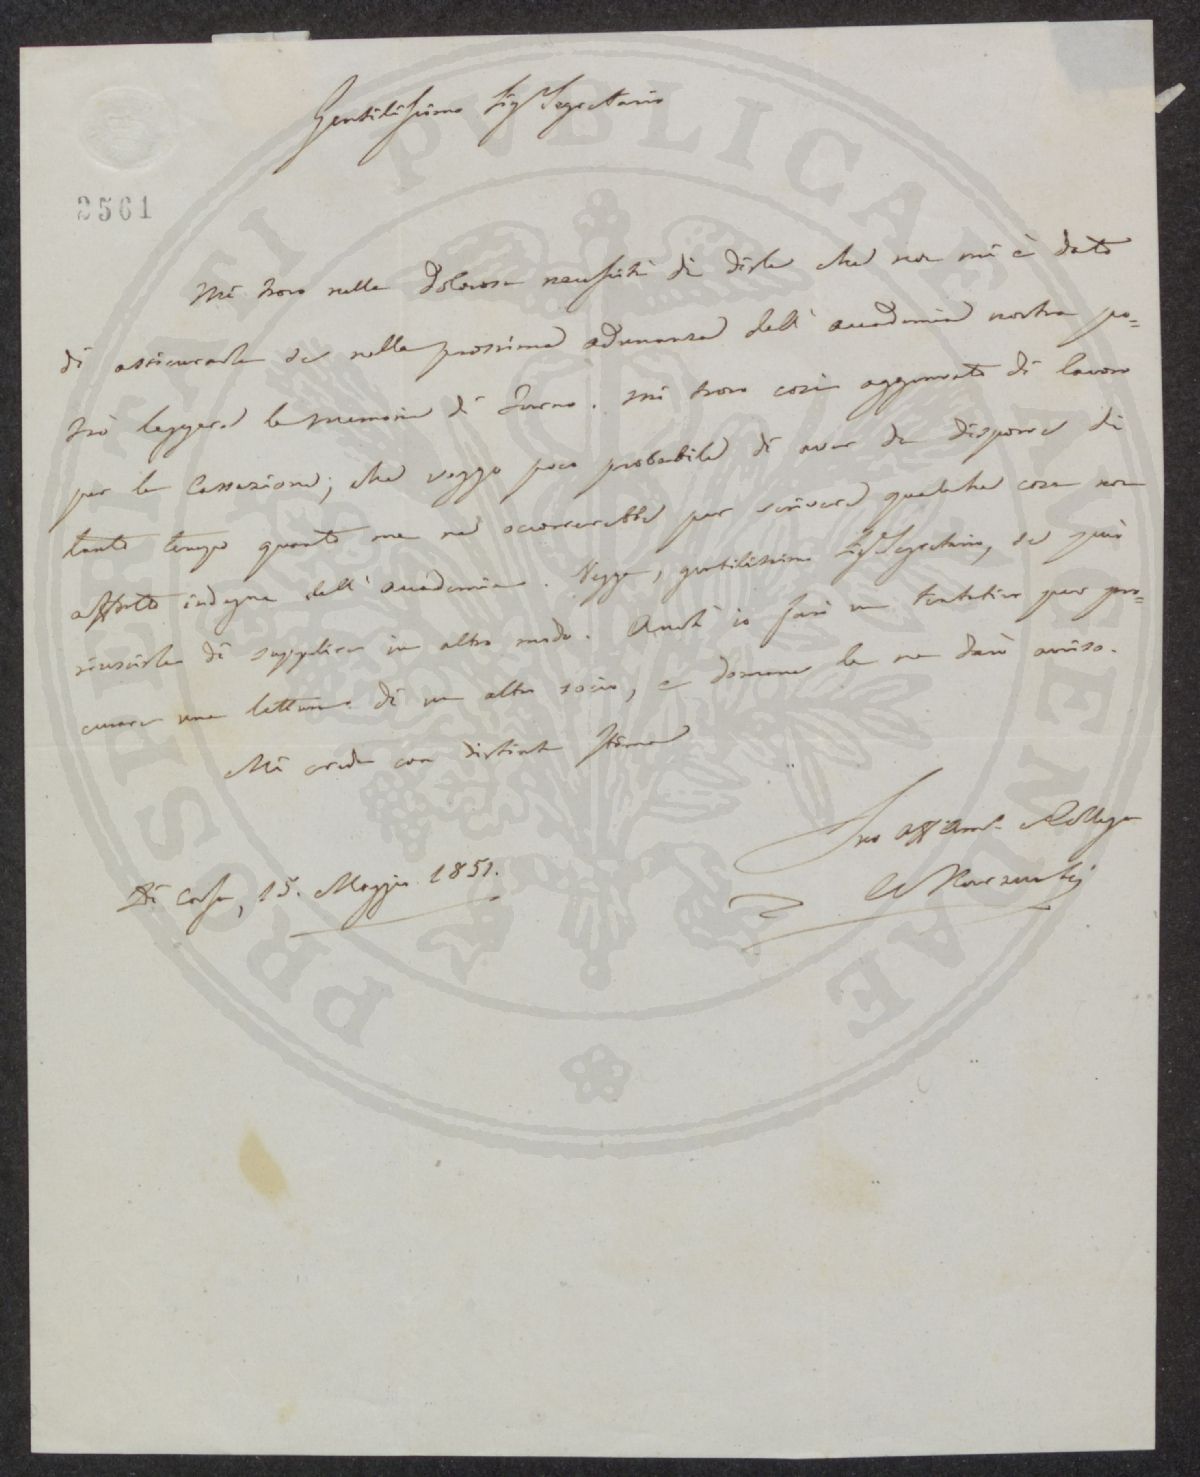 Gentilissimo Sig.r Segretario
2561
Mi trovo nella dolorosa necessità di dirle che non mi è dato
di assicurarla se nella prossima adunanza dell'accademia nostra po=
trò leggere la memoria di turno. Mi trovo così aggravato di lavoro
per la Cassazione, che veggo poco probabile di aver da disporre di
tanto tempo quanto me ne occorrerebbe per scrivere qualche cosa non
affatto indegna dell'accademia. Vegga, gentilissimo Sig.r Segretario, se può
riuscirle di supplire in altro modo. Anch'io farò un tentativo per pro=
curare una lettura di un altro socio, e domani le ne darò avviso.
Mi creda con distinta stima
Suo aff.mo Collega
Di Casa, 15. Maggio 1851.
PROSPERITATI PVBLICAE AVGENDAE